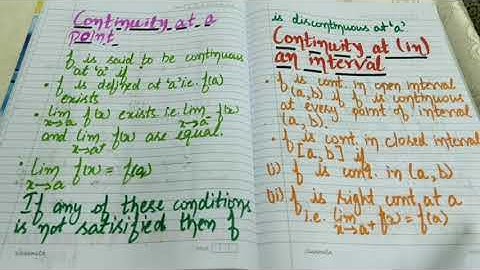 Continuity at a
point
f is said to be continuous
at 'a' if
• f is defined at 'a' i.e. f(a)
exists
• lim x→a f(x) exists i.e. lim x→a⁻ f(x)
and lim x→a⁺ f(x) are equal.
• lim x→a f(x) = f(a)
If any of these conditions
is not satisified then f
classmate
is discontinuous at 'a'
Continuity at (in)
an interval
• f is cont. in open interval
(a, b) if f is continuous
at every point of interval
(a, b).
• f is cont. in closed interval
[a, b] if
(i) f is cont. in (a, b)
(ii) f is right cont. at a
i.e. lim x→a⁺ f(x) = f(a)
classmate